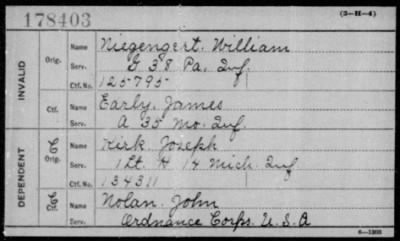 178403 (3-H-4)
INVALID
Orig. Name Niegengert. William
Serv. G 38 Pa. Inf.
Ctf. No. 125795
Ctf. Name Early. James
Serv. A 35 Mo. Inf.
DEPENDENT
Orig. Name Kirk Joseph
Serv. 1 Lt. H 14 Mich. Inf
Ctf. No. 134311
Ctf. Name Nolan. John
Serv. Ordnance Corps. U.S.A